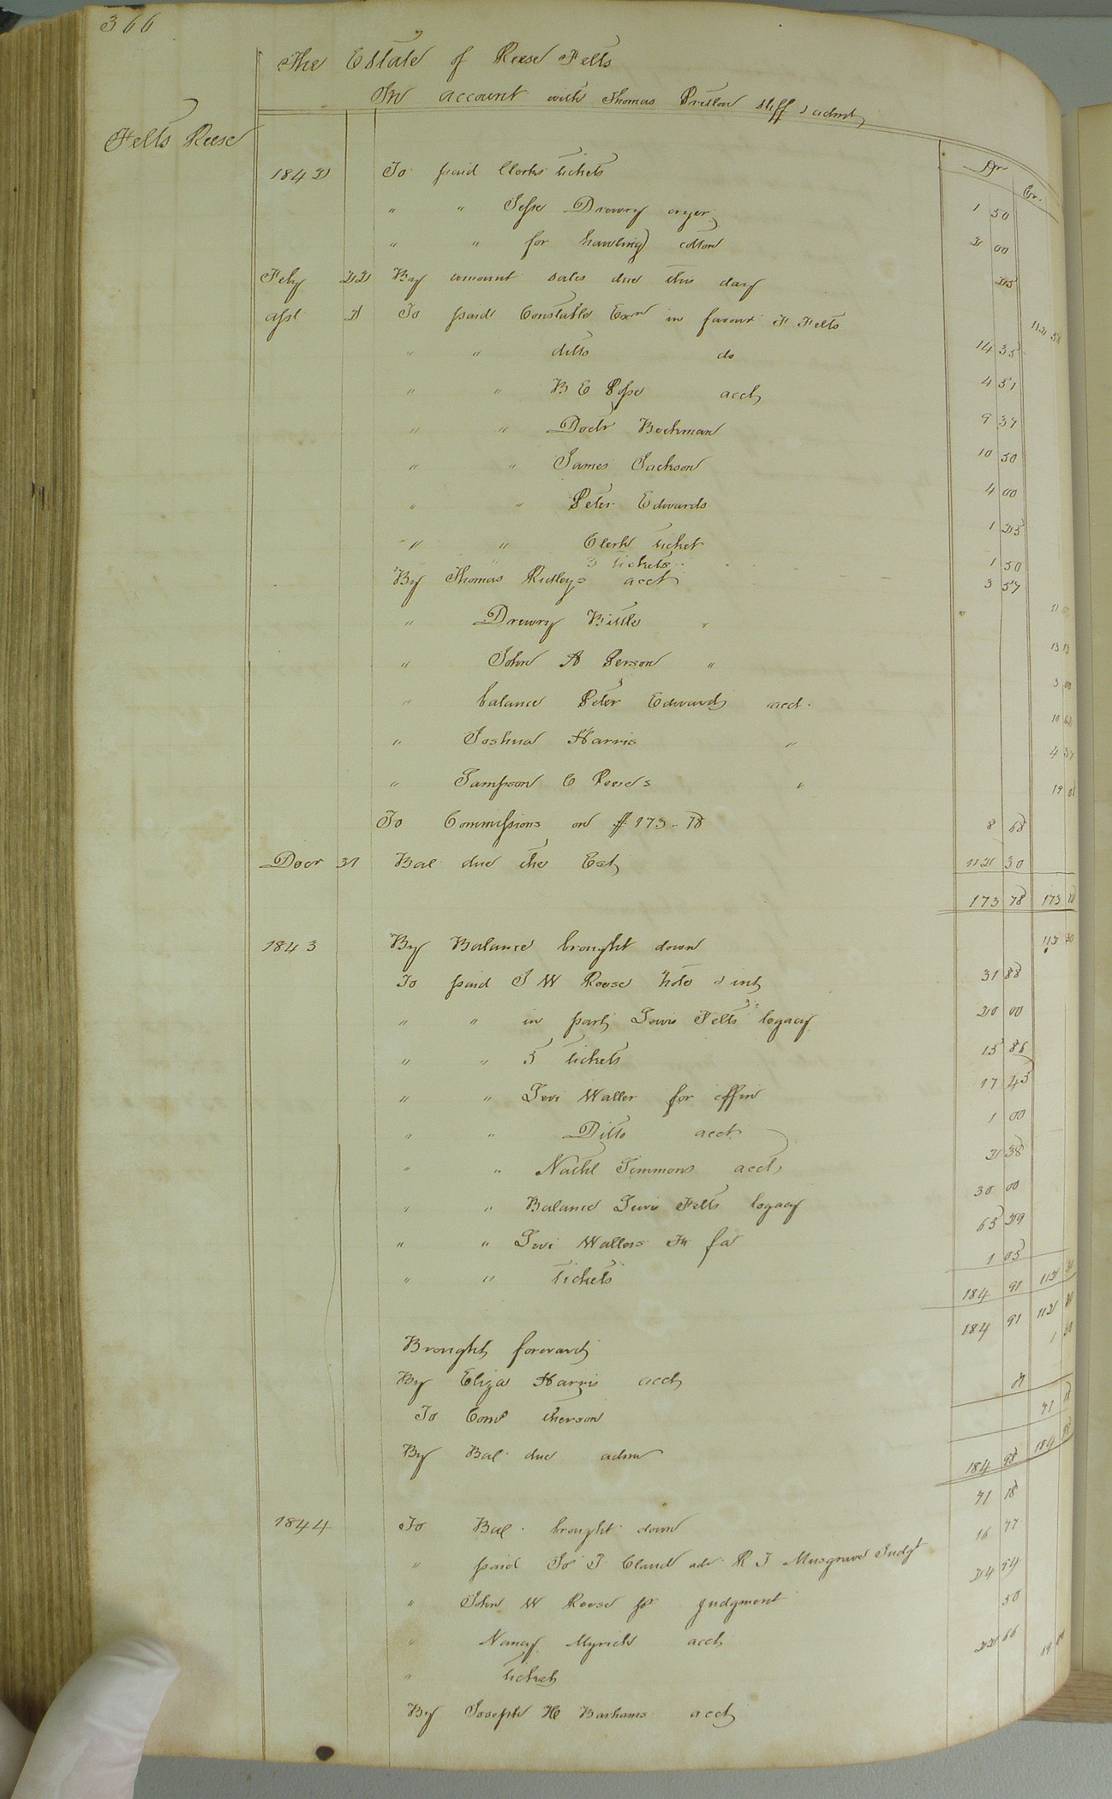 366
The Estate of Reese Felts
In account with Thomas Pretlow shff & admr
Felts Reese
Dr Cr.
1842 To paid Clerks tickets 1 50
" " Jesse Drewry cryer 2 00
" " for hawling cotton 25
Feby 22 By amount sales due this day 112 58
apl 2 To paid Constable Exn in favour F Felts 14 35
" " ditto do 4 51
" " B E Pope acct 9 37
" " Doctr Bochman 10 50
" " James Jackson 4 00
" " Peter Edwards 1 25
" " Clerk ticket 1 50
" " 3 tickets 3 57
By Thomas Ridleys acct 11
" Drewry Bittle " 13 13
" John A Person " 3 00
" balance Peter Edwards acct 10
" Joshua Harris " 4 37
" Sampson C Reeses " 19
To Commissions on $173-78 8 68
Decr 31 Bal due the Est 112 30
173 78 173 78
1843 By Balance brought down 112 30
To paid J W Reese note & int 31 88
" " in part Lewis Felts legacy 20 00
" " 5 tickets 15 88
" " Levi Waller for coffin 17 43
" " Ditto acct 1 00
" " Nathl Simmons acct 2 38
" " Balance Lewis Felts legacy 30 00
" " Levi Wallers Fi fa 65 29
" " tickets 1 05
184 91 112 30
Brought forward 184 91 112 30
By Eliza Harris acct 1 50
To Coms thereon 7
By Bal due admr 71 18
184 98 184 98
1844 To Bal brought down 71 18
" paid P J Claud adr R J Musgrave Judgt 16 77
" John W Reese for judgment 24 94
" Nancy Myrick acct 50
" ticket 22 66
By Joseph H Barhams acct 19